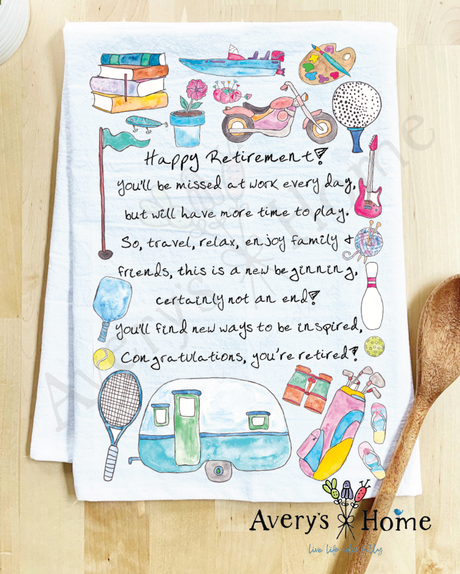 Happy Retirement!
You'll be missed at work every day,
but will have more time to play.
So, travel, relax, enjoy family &
friends, this is a new beginning,
certainly not an end!
You'll find new ways to be inspired,
Congratulations, you're retired!
Avery's Home
live life